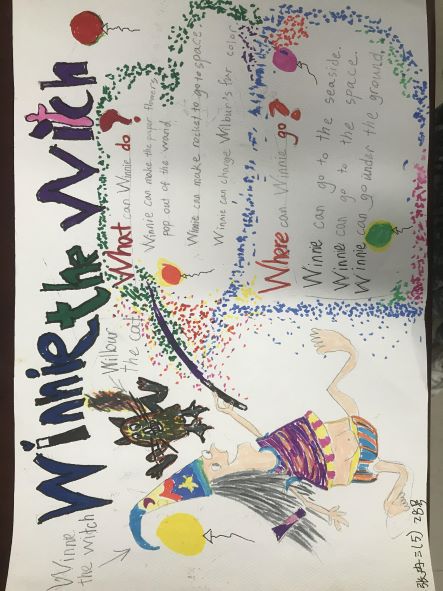 Winnie the Witch
Winnie
the witch
Wilbur
the cat
What can Winnie do?
Winnie can make the paper flowers
pop out of the wand.
Winnie can make rocket to go to space.
Winnie can change Wilbur's fur color
Where can Winnie go?
Winnie can go to the seaside.
Winnie can go to the space.
Winnie can go under the ground.
三(5) 28号